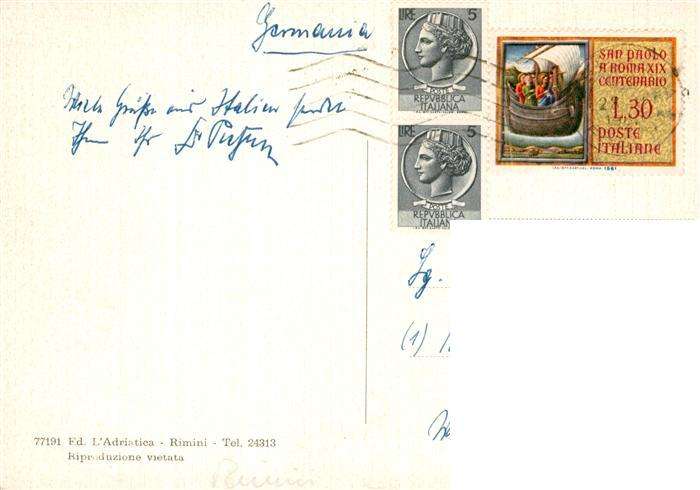 Germania
Viele Grüße aus Italien sendet
Ihnen Ihr Dr
LIRE 5
POSTE
REPVBBLICA
ITALIANA
LIRE 5
POSTE
REPVBBLICA
ITALIAN
SAN PAOLO
A ROMA XIX
CENTENARIO
L.30
POSTE
ITALIANE
1961
(1)
77191 Ed. L'Adriatica - Rimini - Tel. 24313
Riproduzione vietata
Rimini